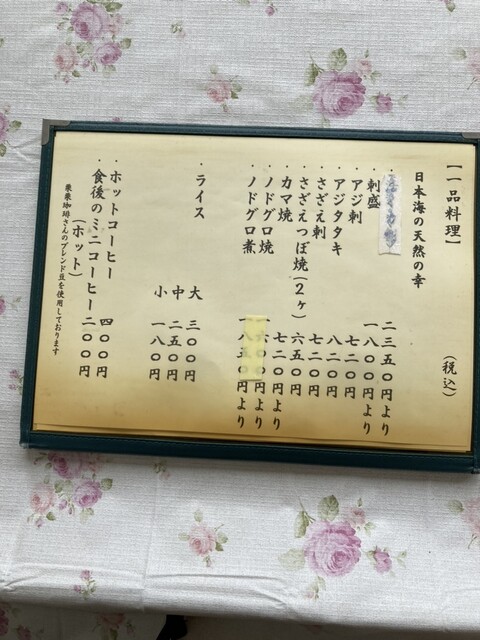 【一品料理】 (税込)
日本海の天然の幸
二三五〇円より
・刺盛 一八〇〇円より
・アジ刺 七二〇円
・アジタタキ 八二〇円
・さざえ刺 七二〇円
・さざえつぼ焼(2ヶ) 六五〇円
・カマ焼 七二〇円より
・ノドグロ焼 一六〇〇円より
・ノドグロ煮 一八五〇円より
・ライス 大 三〇〇円
中 二五〇円
小 一八〇円
・ホットコーヒー 四〇〇円
・食後のミニコーヒー 二〇〇円
(ホット)
珈琲さんのブレンド豆を使用しております